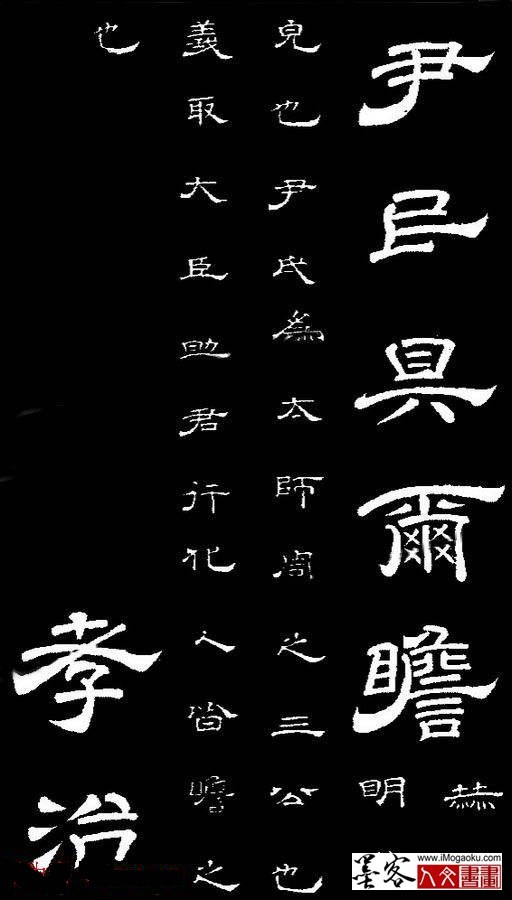 尹民具爾瞻
赫
明
皃也尹氏爲太師周之三公也
義取大臣助君行化人皆瞻之
也
孝治
墨客
www.iMogaoku.com
人文書畫